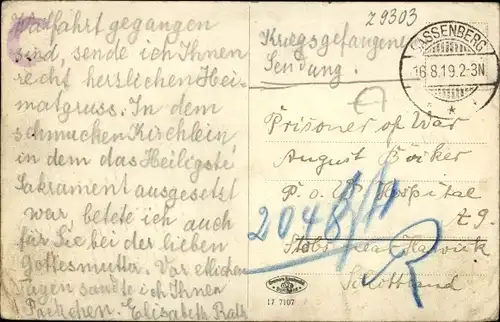 Wallfahrt gegangen
sind, sende ich Ihnen
recht herzlichen Hei-
matgruss. In dem
schmucken Kirchlein,
in dem das Heiligste
Sakrament ausgesetzt
war, betete ich auch
für Sie bei der lieben
Gottesmutter. Vor etlichen
Tagen sandte ich Ihnen
Päckchen. Elisabeth
29303
Kriegsgefangenen
Sendung.
ASSENBERG
16.8.19.2-3N
Prisoner of War
August Böiker
P. o. W. Hospital
Stobs near Hawick
Schottland
2048/11
R
17 7107